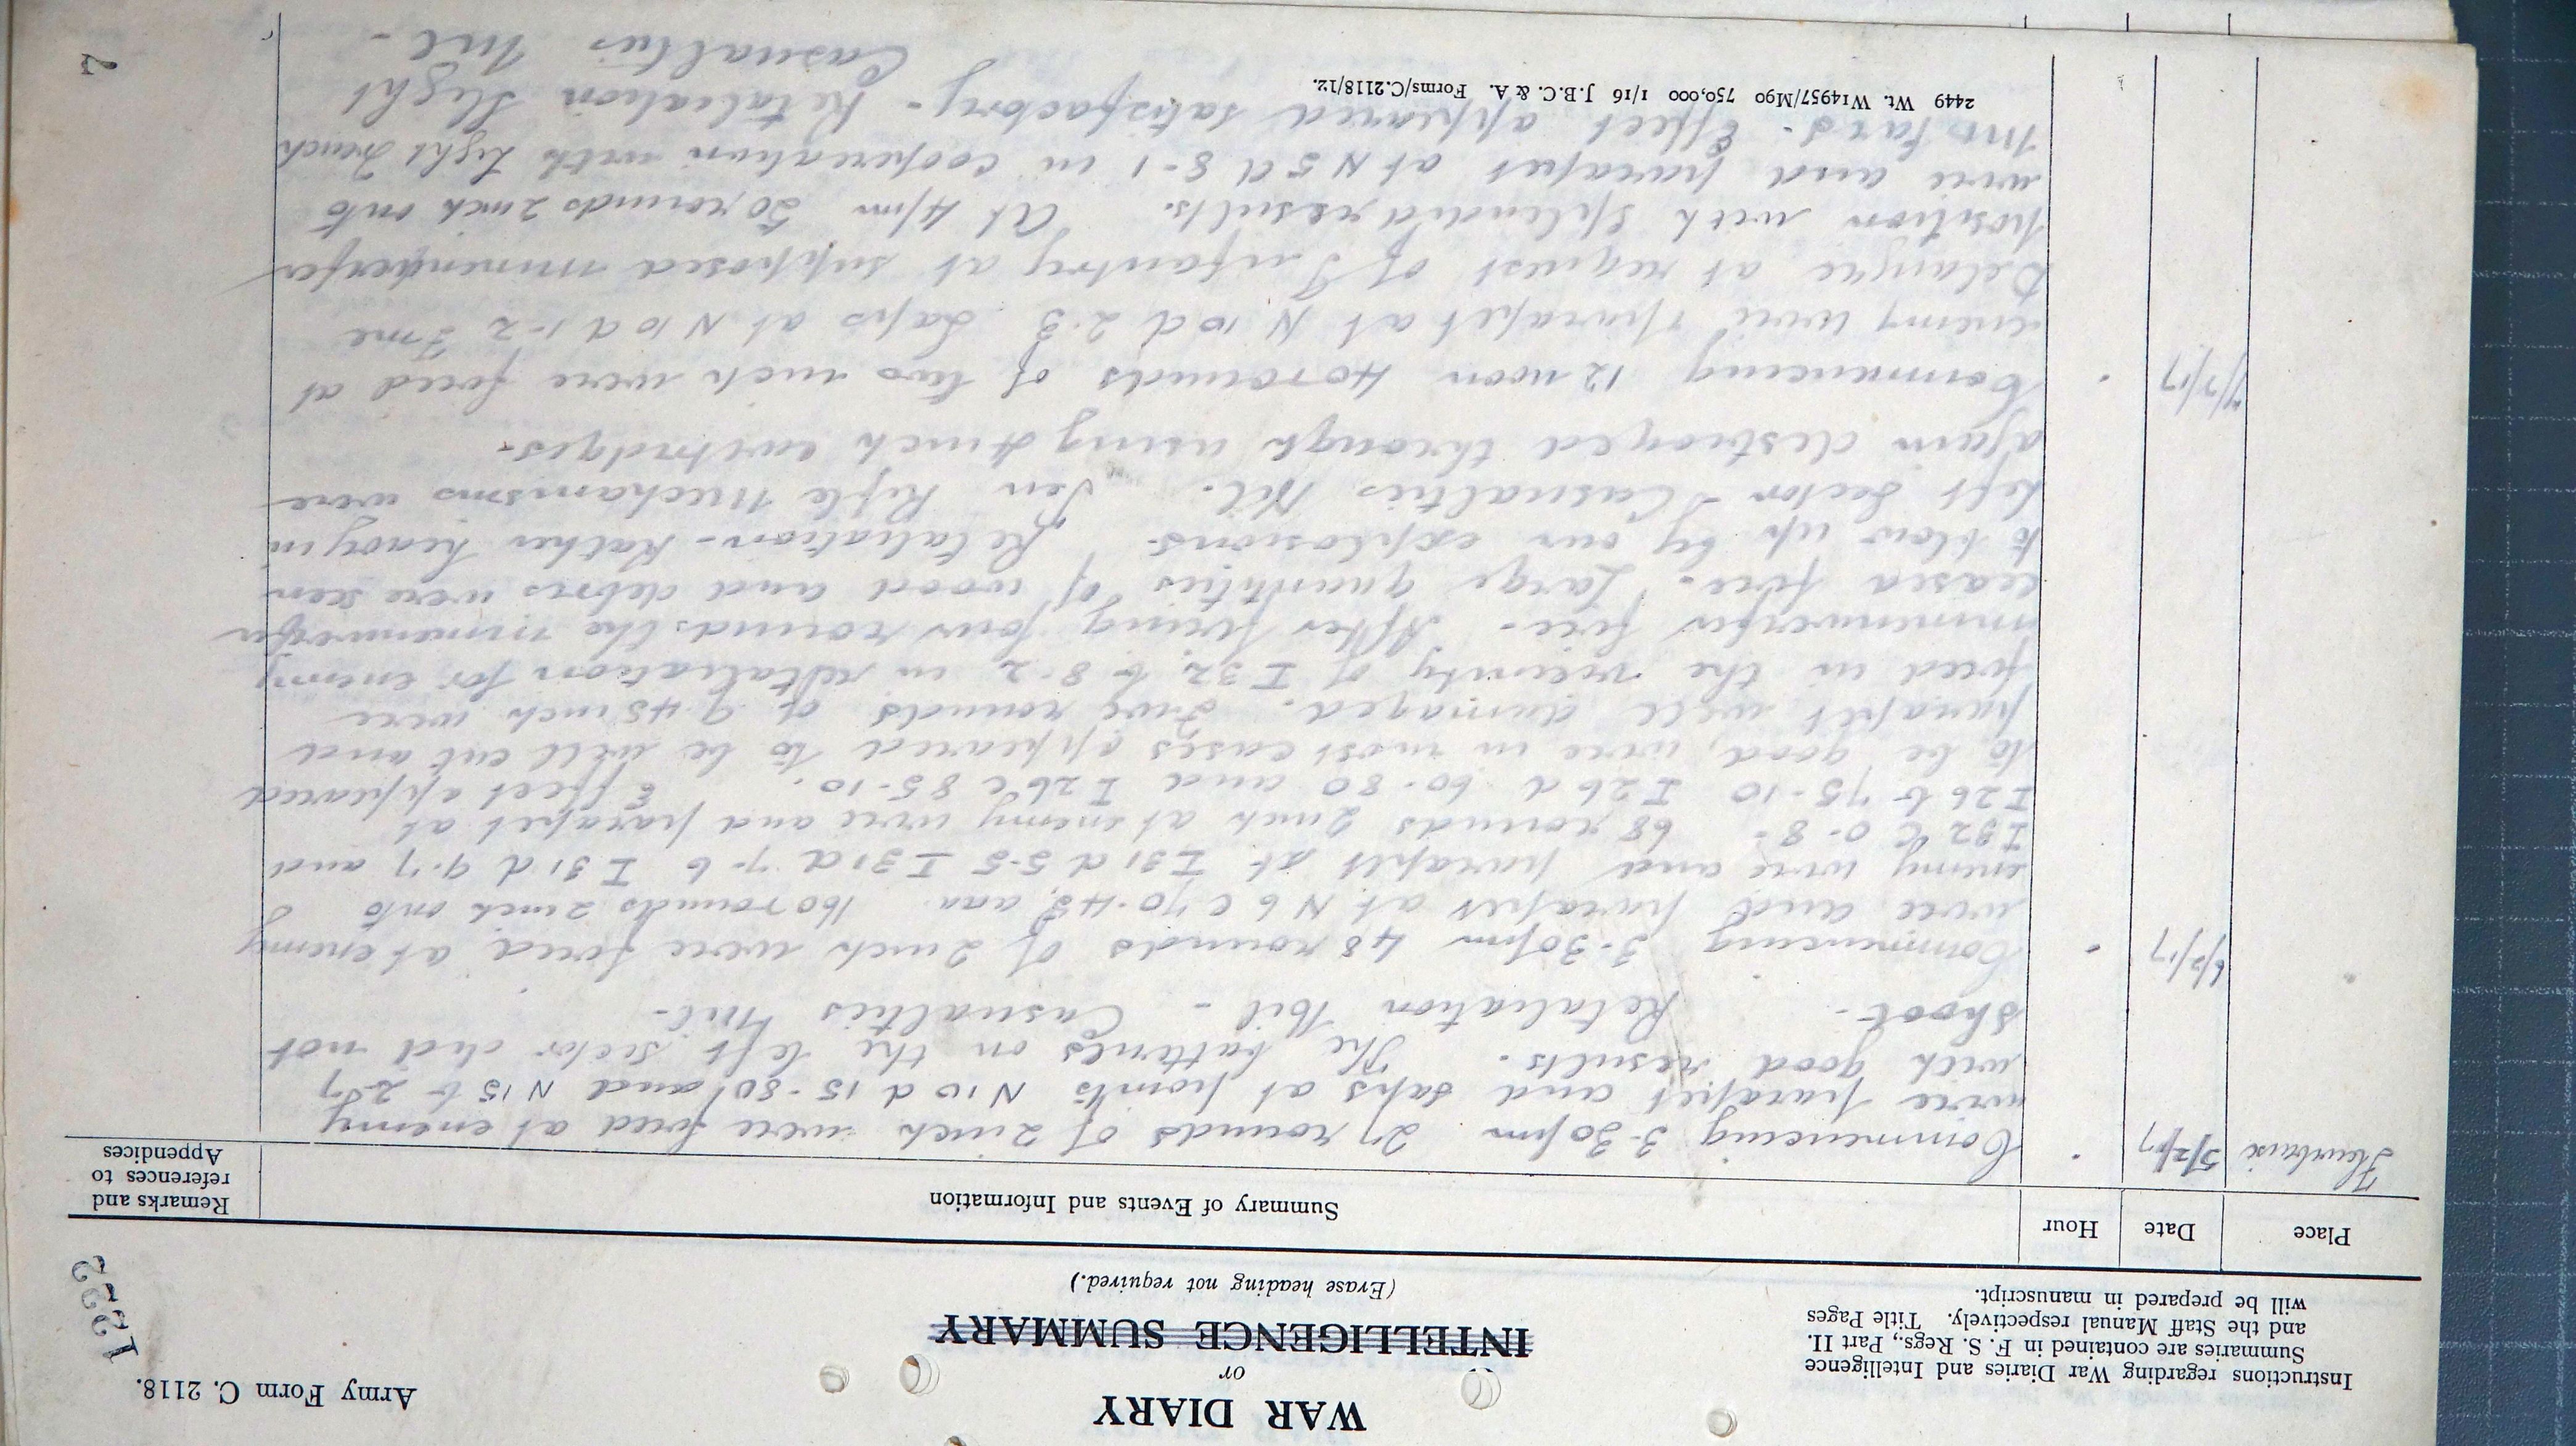 Army Form C. 2118.
WAR DIARY
or
INTELLIGENCE SUMMARY
(Erase heading not required.)
Instructions regarding War Diaries and Intelligence
Summaries are contained in F. S. Regs., Part II.
and the Staff Manual respectively. Title Pages
will be prepared in manuscript.
1222
Place
Date
Hour
Summary of Events and Information
Remarks and
references to
Appendices
Fleurbaix 5/2/17 Commencing 3-30pm 27 rounds of 2 inch were fired at enemy
wire parapet and saps at points N10 d 15-80 and N15 b 2-7
with good results. The batteries on the left sector did not
shoot. Retaliation Nil - Casualties Nil -
6/2/17 Commencing 3-30pm 48 rounds of 2 inch were fired at enemy
wire and parapet at N 6 c 70.45 160 rounds 2 inch onto
enemy wire and parapet at I 31 d 5-5 I 31 d 7-6 I 31 d 9.7 and
I 32 c 0-8 - 68 rounds 2 inch at enemy wire and parapet at
I 26 b 75-10 I 26 d 60-80 and I 26 c 85-10. Effect appeared
to be good, wire in most cases appeared to be well cut and
parapet well damaged. Five rounds of 9.45 inch were
fired in the vicinity of I 32 b 8.2 in retaliation for enemy
minenwerfer fire - After firing four rounds the minenwerfer
ceased fire. Large quantities of wood and debris were seen
to blow up by our explosions. Retaliation - Rather heavy in
left Sector - Casualties Nil. Ten Rifle Mechanisms were
again destroyed through using 4 inch cartridges.
7/2/17 Commencing 12 noon 40 rounds of two inch were fired at
enemy wire & parapet at N 10 d 2.3 Saps at N 10 d 1-2 Fme
Delangre at request of Infantry at supposed minenwerfer
position with splendid results. At 4pm 50 rounds 2 inch onto
wire and parapet at N 5 d 8-1 in cooperation with Light Trench
Mortars. Effect appeared satisfactory - Retaliation Slight
Casualties Nil -
2449 Wt. W14957/M90 750,000 1/16 J.B.C. & A. Forms/C.2118/12.